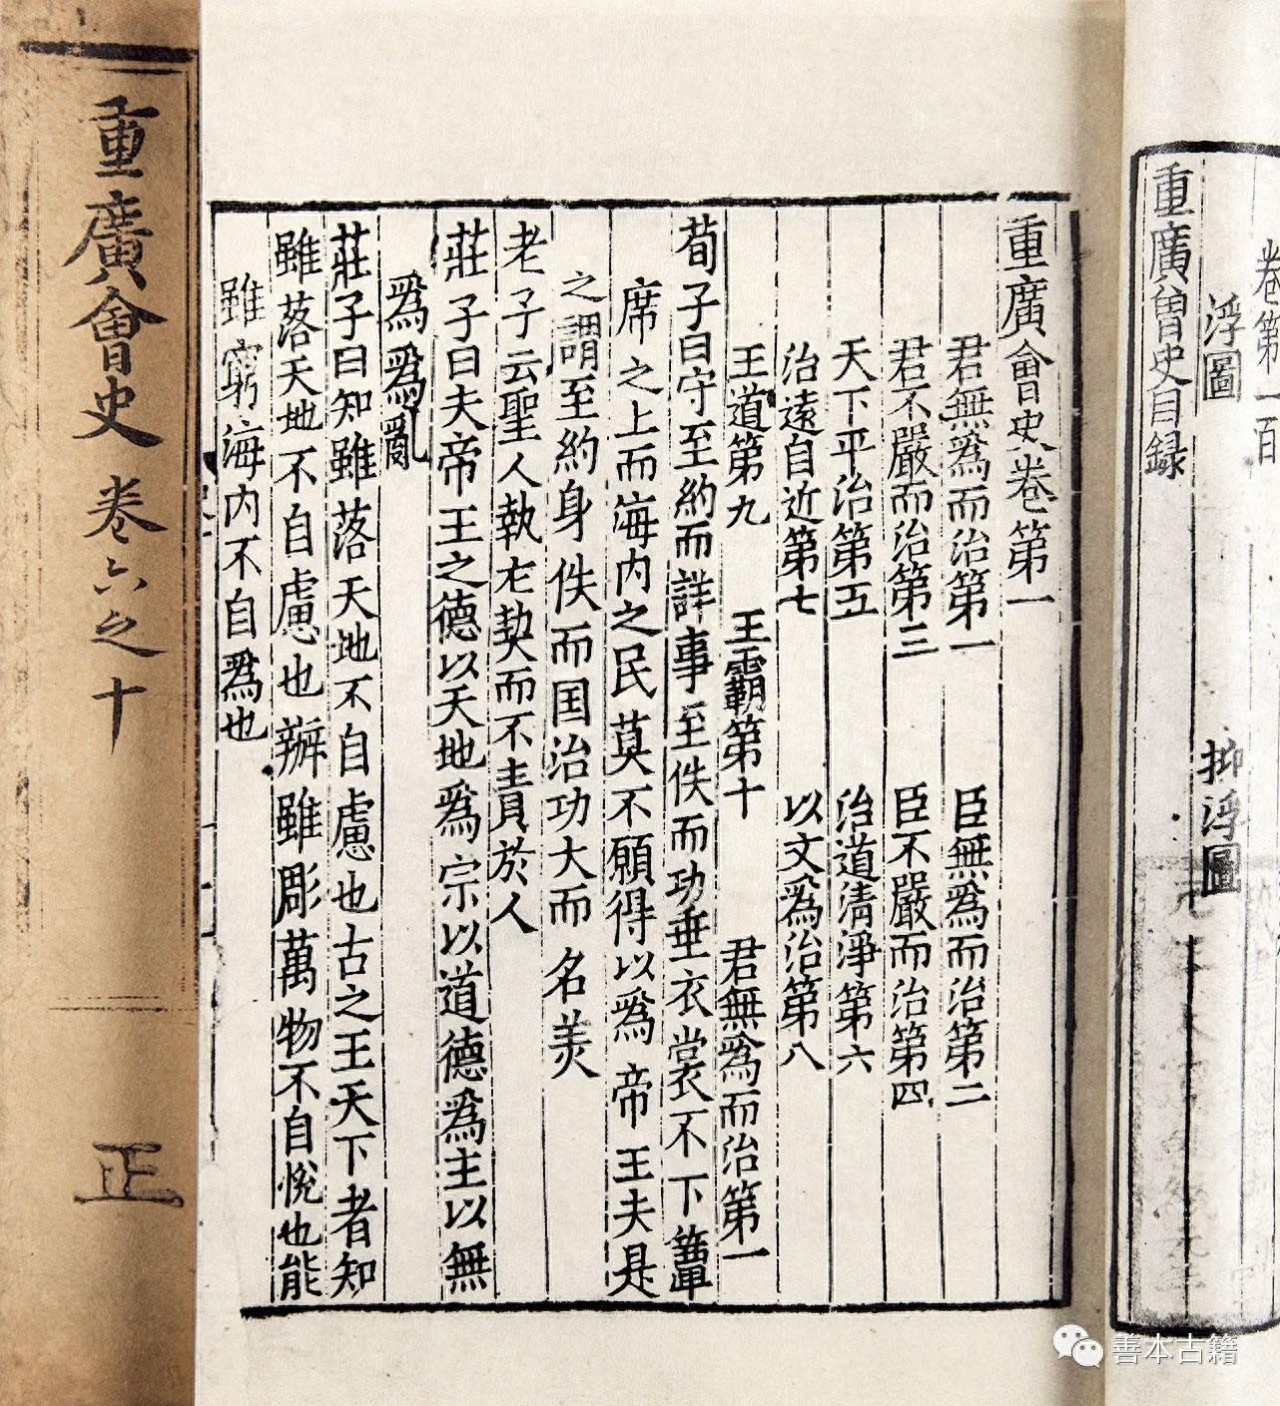 卷第一百
浮圖
抑浮圖
重廣會史目録
重廣會史卷第一
君無爲而治第一
臣無爲而治第二
君不嚴而治第三
臣不嚴而治第四
天下平治第五
治道清淨第六
治遠自近第七
以文爲治第八
王道第九
王霸第十
君無爲而治第一
荀子曰守至約而詳事至佚而功垂衣裳不下簟
席之上而海内之民莫不願得以爲帝王夫是
之謂至約身佚而国治功大而名美
老子云聖人執左契而不責於人
莊子曰夫帝王之德以天地爲宗以道德爲主以無
爲爲亂
莊子曰知雖落天地不自慮也古之王天下者知
雖落天地不自慮也辯雖彫萬物不自悅也能
雖窮海内不自爲也
重廣會史 卷六之十
正
善本古籍